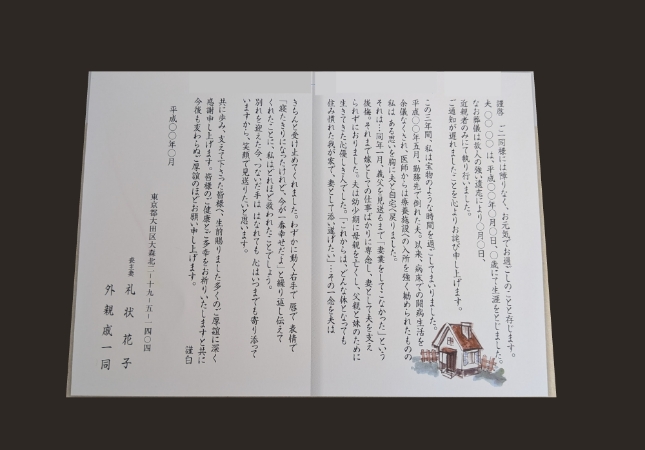 謹啓　ご一同様には障りなく、お元気でお過ごしのことと存じます。
夫　〇〇〇〇は、平成〇〇年〇月〇〇日、〇歳にて生涯をとじました。
なお葬儀は故人の強い遺志により〇月〇日、
近親者のみにて執り行いました。
ご通知が遅れましたことを心よりお詫び申し上げます。
この三年間、私は宝物のような時間を過ごしてまいりました。
平成〇〇年五月、勤務先で倒れた夫。以来、病床での闘病生活を
余儀なくされ、医師からは療養施設への入所を強く勧められたものの
私は、ある思いを胸に夫と自宅へ戻りました。
それは…同年一月、義父を見送るまで「妻業をしてこなかった」という
後悔。それまで嫁としての仕事ばかりに専念し、妻として夫を支え
られずにおりました。夫は幼少期に母親を亡くし、父親と妹のために
生きてきた心優しき人でした。「これからは、どんな体となっても
住み慣れた我が家で、妻として添い遂げたい」…その一念を夫は
きちんと受け止めてくれました。わずかに動く右手で、唇で、表情で
「寝たきりになったけれど、今が一番幸せだよ」と繰り返し伝えて
くれたことに、私はどれほど救われたことでしょう。
別れを迎えた今、つないだ手は、はなれても、心はいつまでも寄り添って
いますから、笑顔で見送りたいと思います。
共に歩み、支えて下さった皆様へ、生前賜りました多くのご厚誼に深く
感謝申し上げます。皆様のご健康とご多幸をお祈りいたしますと共に
今後も変わらぬご厚誼のほどお願い申し上げます。
謹白
平成〇〇年〇月
東京都大田区大森北二－十九－五－一四〇四
喪主妻　礼状　花子
外　親戚一同